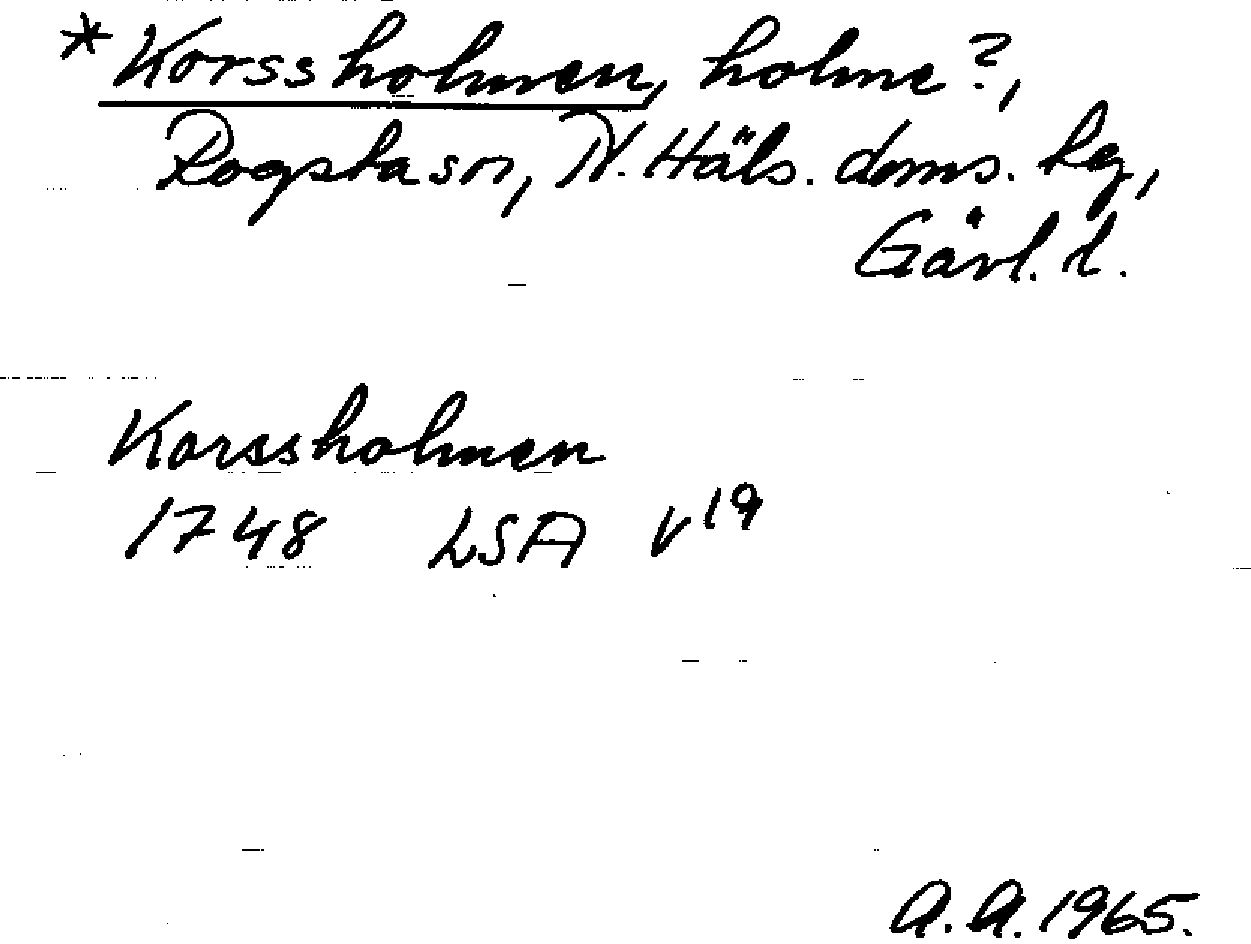 *Korssholmen, holme?,
Rogsta sn, N. Häls. doms. hg,
Gävl. l.
Korssholmen
1748 LSA V19
A.A. 1965.